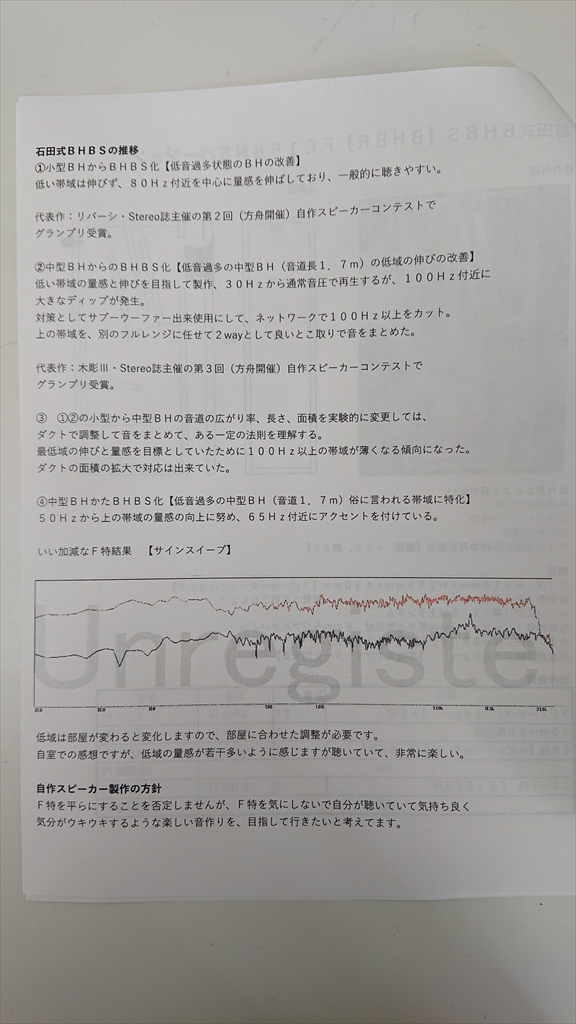 石田式ＢＨＢＳの推移
①小型ＢＨからＢＨＢＳ化【低音過多状態のＢＨの改善】
低い帯域は伸びず、８０Ｈｚ付近を中心に量感を伸ばしており、一般的に聴きやすい。
代表作：リバーシ・Stereo誌主催の第２回（方舟開催）自作スピーカーコンテストで
グランプリ受賞。
②中型ＢＨからのＢＨＢＳ化【低音過多の中型ＢＨ（音道長１．７ｍ）の低域の伸びの改善】
低い帯域の量感と伸びを目指して製作、３０Ｈｚから通常音圧で再生するが、１００Ｈｚ付近に
大きなディップが発生。
対策としてサブーウーファー出来使用にして、ネットワークで１００Ｈｚ以上をカット。
上の帯域を、別のフルレンジに任せて２wayとして良いとこ取りで音をまとめた。
代表作：木彫Ⅲ・Stereo誌主催の第３回（方舟開催）自作スピーカーコンテストで
グランプリ受賞。
③　①②の小型から中型ＢＨの音道の広がり率、長さ、面積を実験的に変更しては、
ダクトで調整して音をまとめて、ある一定の法則を理解する。
最低域の伸びと量感を目標としていたために１００Ｈｚ以上の帯域が薄くなる傾向になった。
ダクトの面積の拡大で対応は出来ていた。
④中型ＢＨかたＢＨＢＳ化【低音過多の中型ＢＨ（音道１．７ｍ）俗に言われる帯域に特化】
５０Ｈｚから上の帯域の量感の向上に努め、６５Ｈｚ付近にアクセントを付けている。
いい加減なＦ特結果　【サインスイープ】
Unregiste
低域は部屋が変わると変化しますので、部屋に合わせた調整が必要です。
自室での感想ですが、低域の量感が若干多いように感じますが聴いていて、非常に楽しい。
自作スピーカー製作の方針
Ｆ特を平らにすることを否定しませんが、Ｆ特を気にしないで自分が聴いていて気持ち良く
気分がウキウキするような楽しい音作りを、目指して行きたいと考えてます。